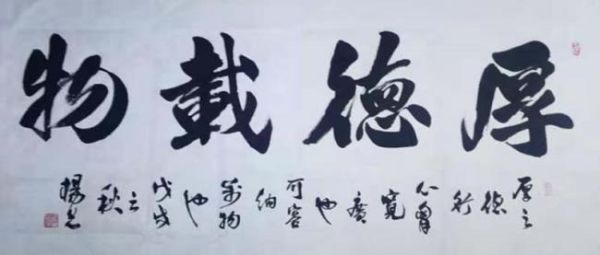 厚德載物
厚之
德行
心胸
寬
廣
也
可容
納
萬物
也
戊戌
之
秋
楊